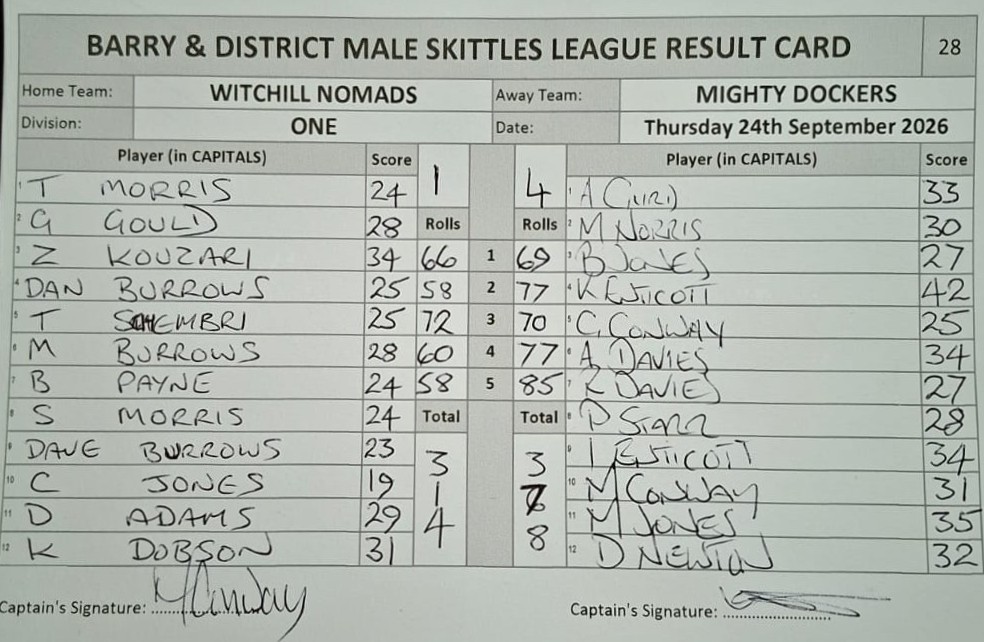 BARRY & DISTRICT MALE SKITTLES LEAGUE RESULT CARD 28
Home Team: WITCHILL NOMADS Away Team: MIGHTY DOCKERS
Division: ONE Date: Thursday 24th September 2026
Player (in CAPITALS) Score 1 4 Player (in CAPITALS) Score
1 T MORRIS 24 1 A 33
2 G GOULD 28 Rolls Rolls 2 M NORRIS 30
3 Z KOUZARI 34 66 1 69 3 B JONES 27
4 DAN BURROWS 25 58 2 77 4 K ESTICOTT 42
5 T SCHEMBRI 25 72 3 70 5 C CONWAY 25
6 M BURROWS 28 60 4 77 6 A DAVIES 34
7 B PAYNE 24 58 5 85 7 K DAVIES 27
8 S MORRIS 24 Total Total 8 P STARR 28
9 DAVE BURROWS 23 3 3 9 I ESTICOTT 34
10 C JONES 19 1 7 10 M CONWAY 31
11 D ADAMS 29 4 8 11 M JONES 35
12 K DOBSON 31 12 D NEWTON 32
Captain's Signature: M Conway Captain's Signature: